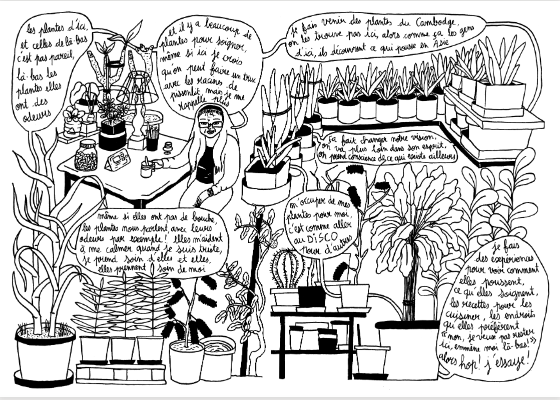 les plantes d'ici,
et celles de là-bas
c'est pas pareil,
là-bas les
plantes elles
ont des
odeurs
et il y a beaucoup de
plantes pour soigner,
même si ici je crois
qu'on peut faire un truc
avec les racines de
pissenlit, mais je me
rappelle plus
je fais venir des plantes du Cambodge,
on les trouve pas ici, alors comme ça les gens
d'ici, ils découvrent ce qui pousse en Asie
ça fait changer notre vision,
on va plus loin dans son esprit,
on prend conscience de ce qui existe ailleurs
même si elles ont pas de bouche
les plantes nous parlent avec leurs
odeurs par exemple! elles m'aident
à me calmer quand je suis triste,
je prend soin d'elles et elles,
elles prennent soin de moi
m'occuper de mes
plantes pour moi
c'est comme aller
au DISCO
pour d'autres
je fais
des expériences
pour voir comment
elles poussent,
ce qu'elles soignent,
les recettes pour les
cuisiner, les endroits
qu'elles préfèrent
"non, je veux pas rester
ici, emmène moi là-bas!"
alors hop! j'essaye!